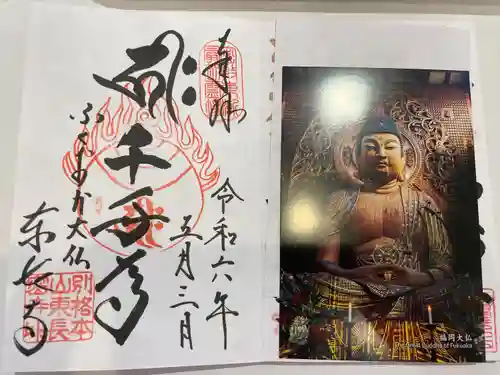 奉拝
令和六年
五月三日
千手
ふくおか大仏
東長寺
別格本
山東長
福岡大仏
The Great Buddha of Fukuoka